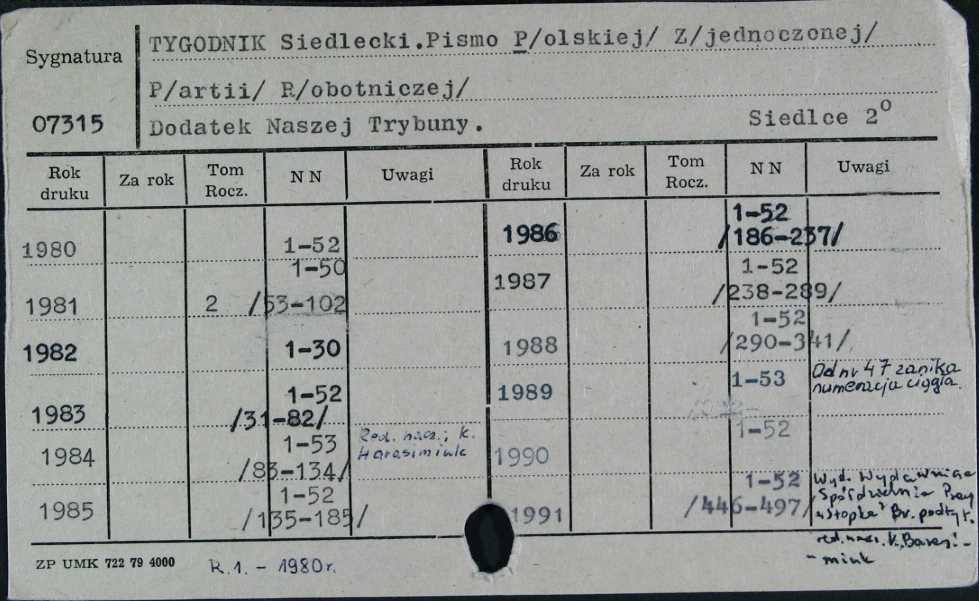 Sygnatura
07315
TYGODNIK Siedlecki.Pismo P/olskiej/ Z/jednoczonej/
P/artii/ R/obotniczej/
Dodatek Naszej Trybuny.
Siedlce 2°
Rok druku Za rok Tom Rocz. NN Uwagi Rok druku Za rok Tom Rocz. NN Uwagi
1980 1-52
1981 2 1-50
/53-102
1982 1-30
1983 1-52
/31-82/
1984 1-53
/83-134/
Red. nacz.; K.
Harasimiuk
1985 1-52
/135-185/
1986 1-52
/186-237/
1987 1-52
/238-289/
1988 1-52
/290-341/
1989 1-53
Od nr 47 zanika
numeracja ciągła.
1990 1-52
1991 1-52
/446-497/
Wyd. Wydawnicza
Spółdzielnia
red. nacz. K.
-miuk
ZP UMK 722 79 4000
R.1. - 1980r.